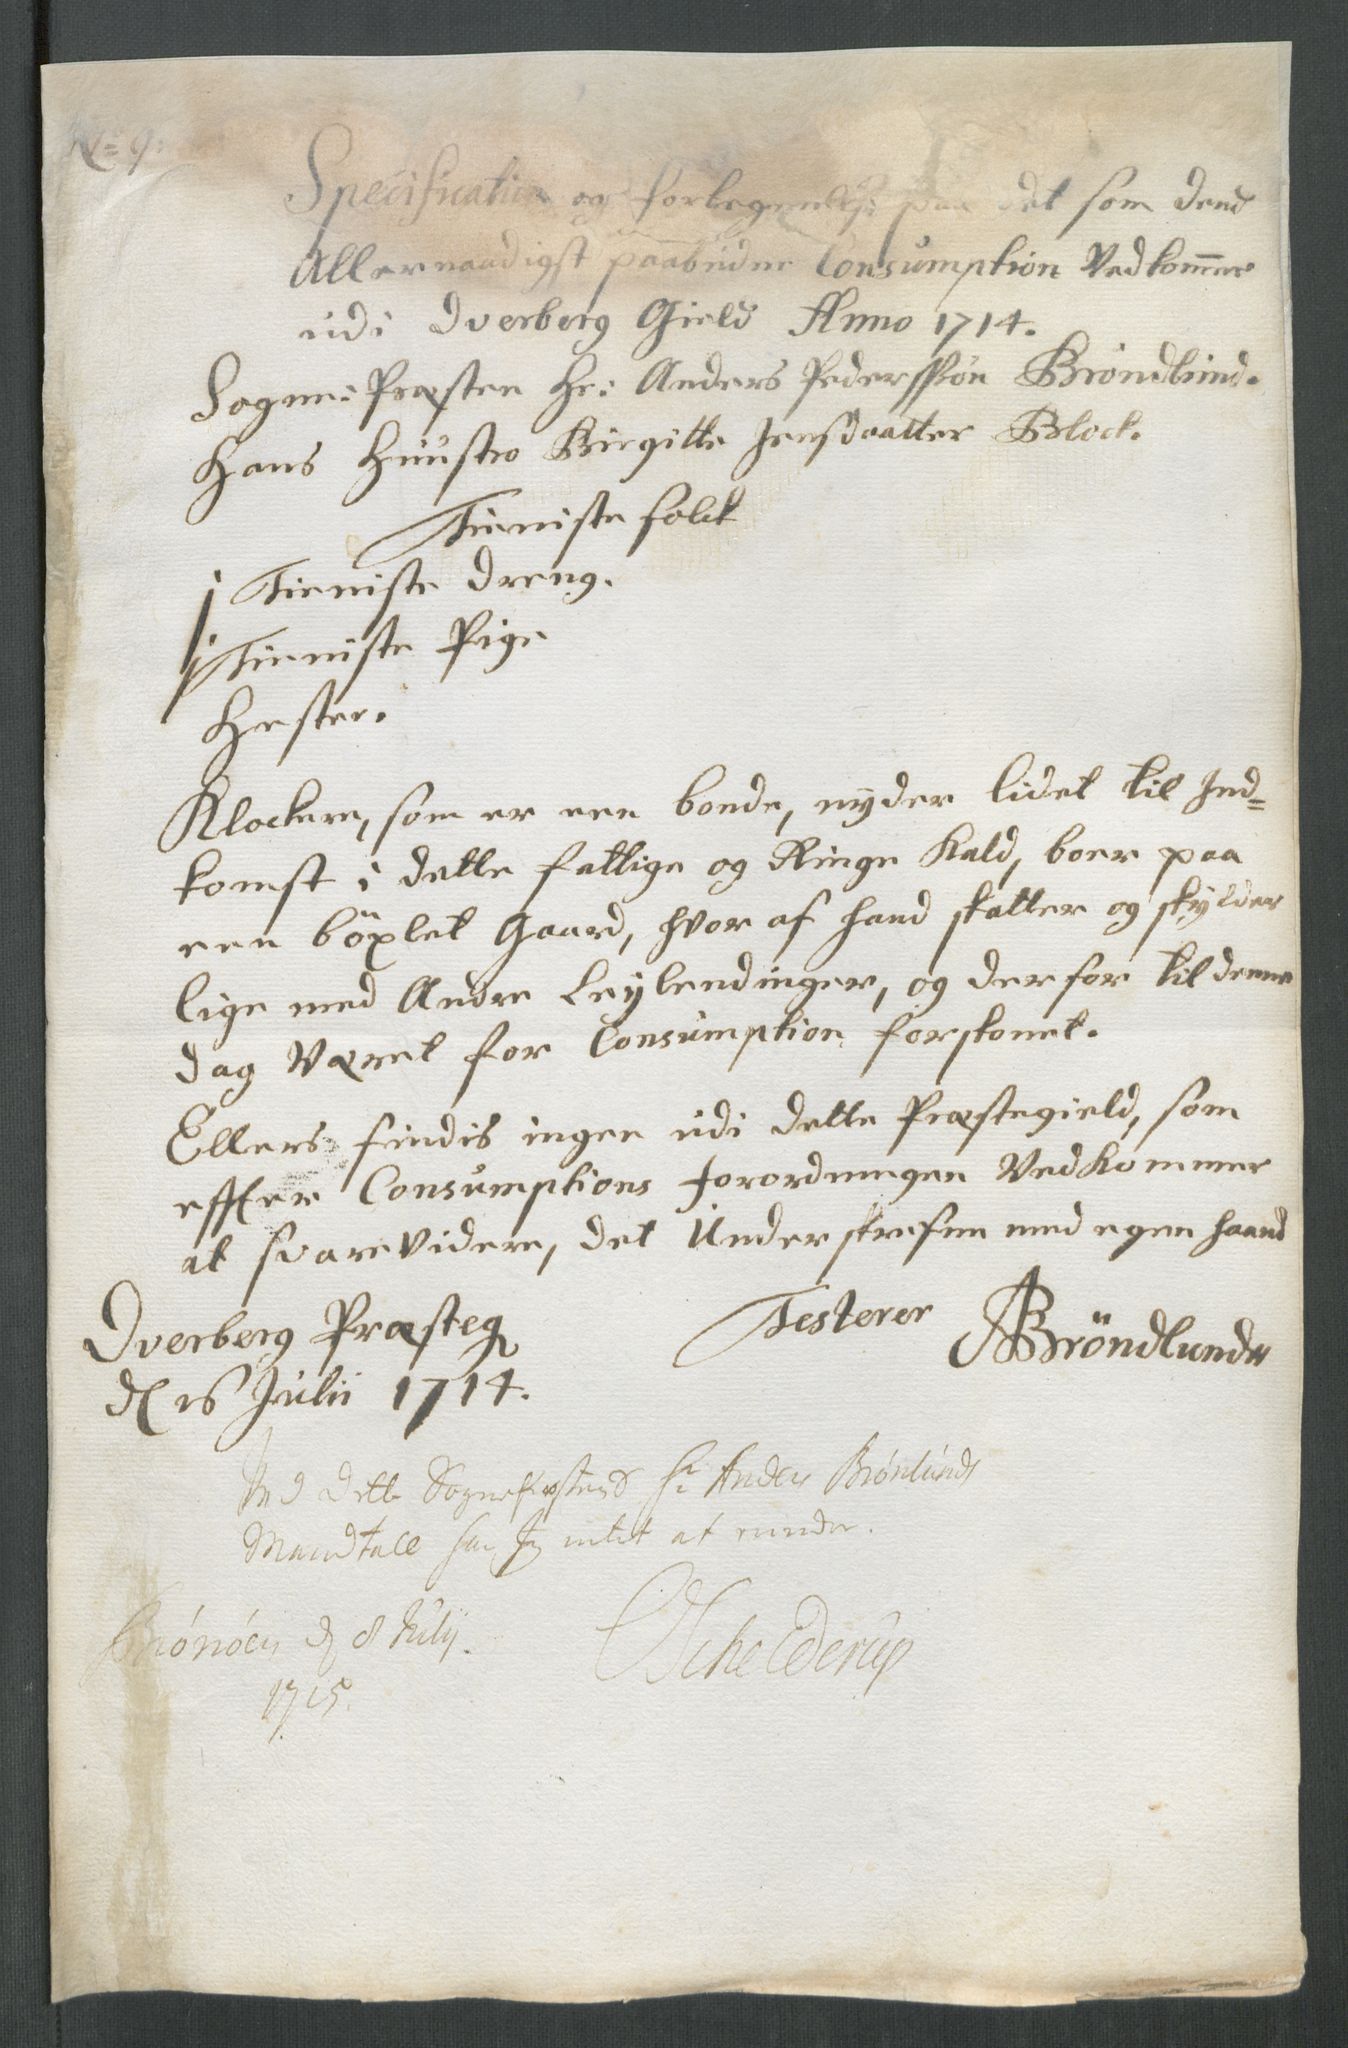 No 9.
Specification og fortegnelse paa det som dend
Allernaadigst paabudne Consumption Vedkommer
udi Dverberg Gield Anno 1714.
Sogne-Præsten Hr: Anders Pederssøn Brøndlund.
Hans Huustro Birgitte Jensdaatter Block.
Tieniste folck
1 Tieniste dreng.
1 Tieniste Pige
Hester.
Klockere, som er een bonde, nyder lidet til Ind=
komst i dette fattige og Ringe Kald, boer paa
een böxlet Gaard, hvor af hand skatter og skylder
lige med Andre Leylendinger, og derfor til denne
dag Været for Consumption forskonet.
Ellers findis ingen udi dette Præstegield, som
effter Consumptions forordningen Vedkommer
at svare Videre, det Underskrefne med egen haand
Dverberg Præsteg Testerer ABröndlund
d 16 Julii 1714.
Ved dette Sognepræstens Hr Anders Brønlunds
Mandtall har Jeg intet at minde.
Brónóen d 8 Julij.
1715.
OSchelderup